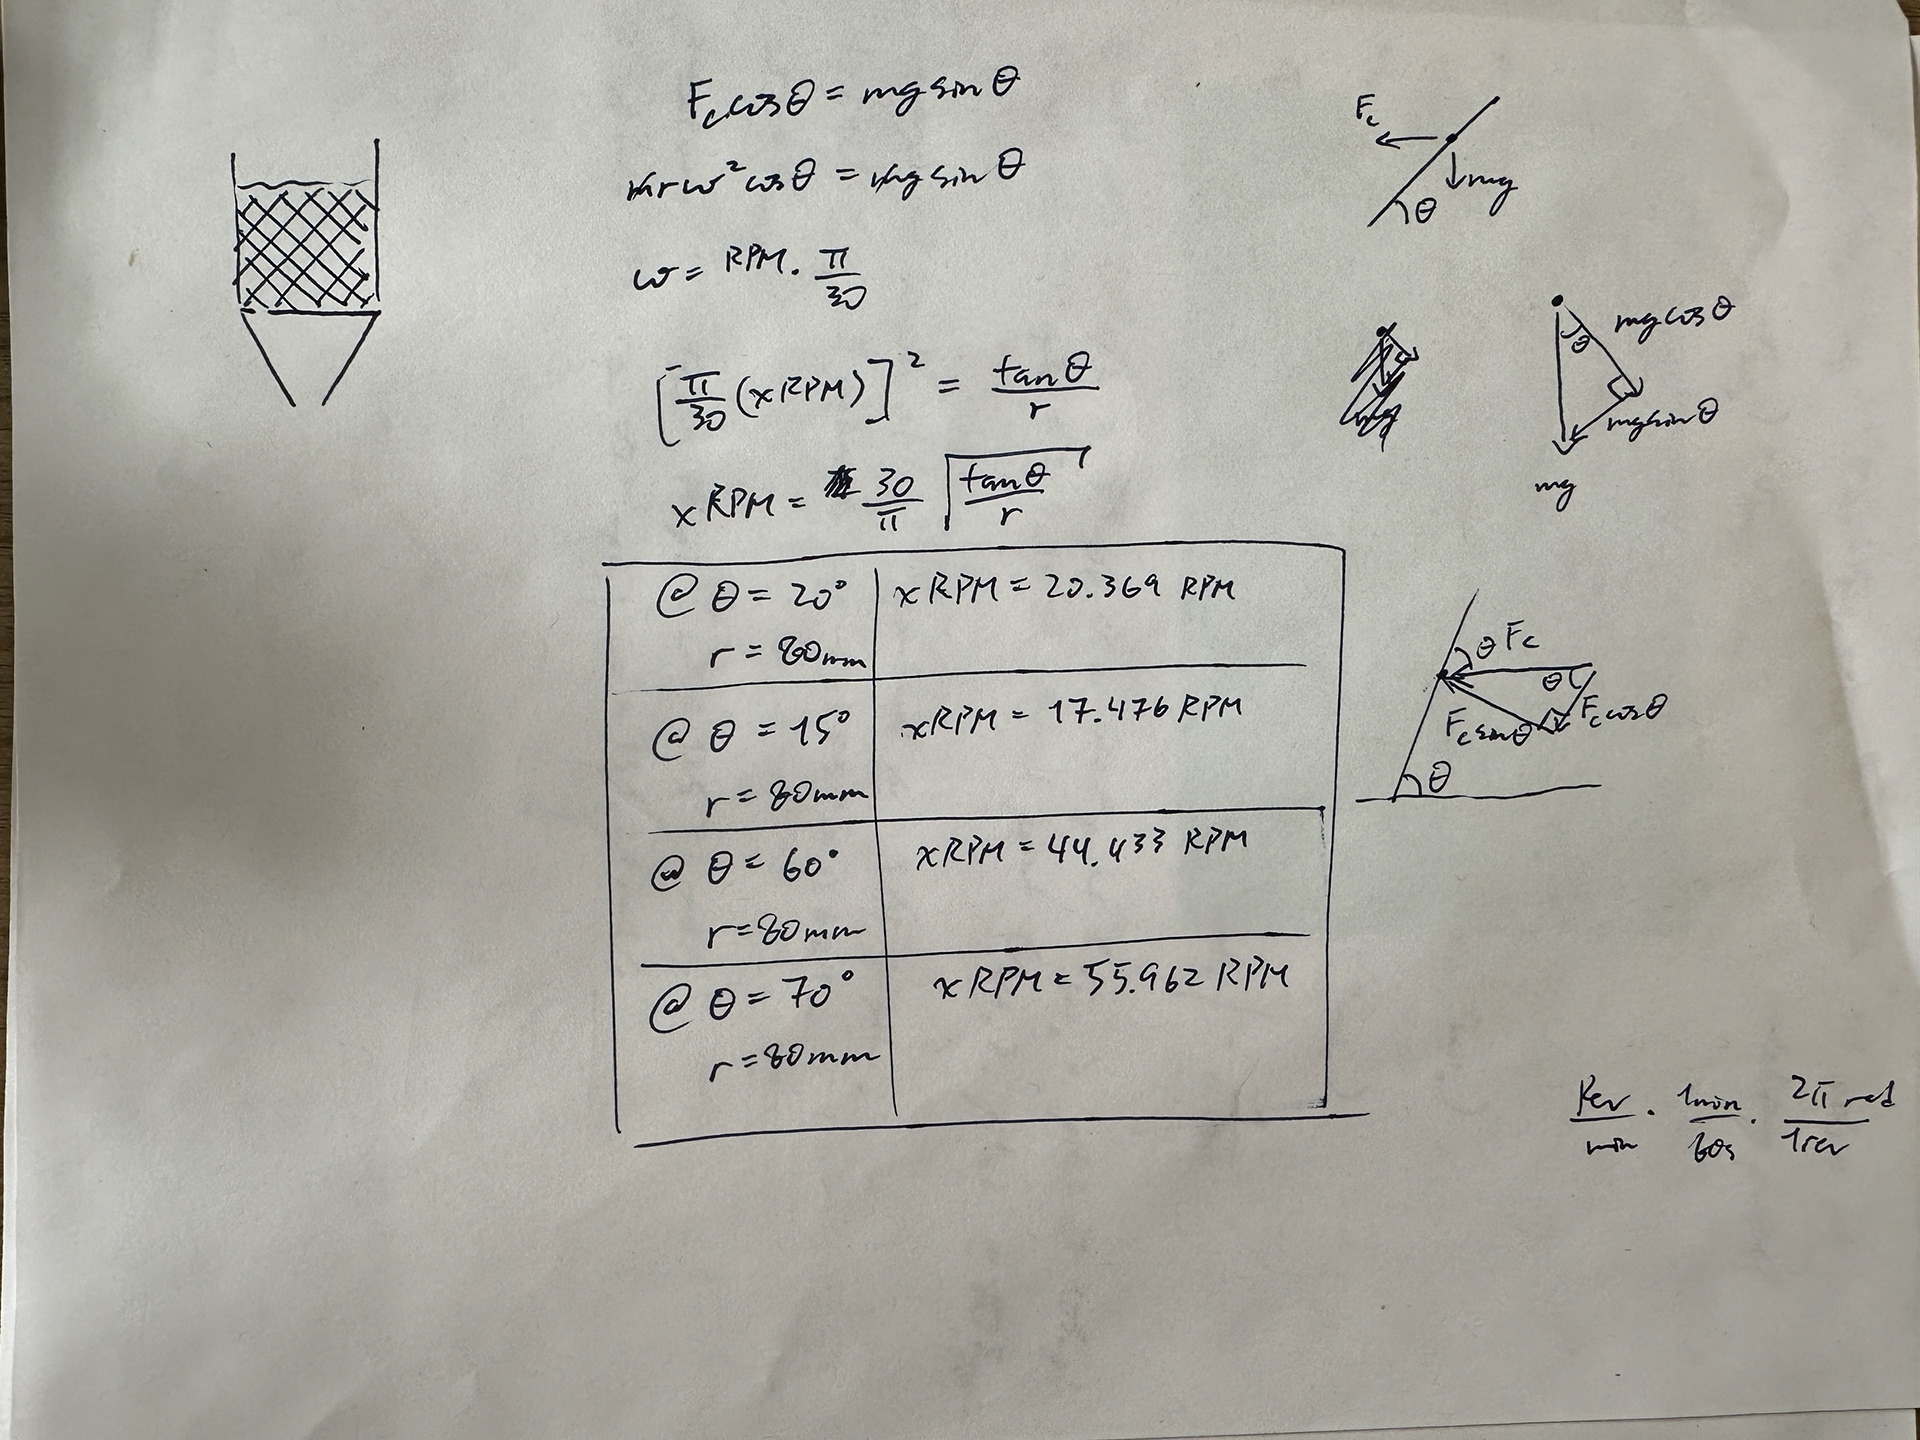 F_c cosθ = mg sinθ
mrω² cosθ = mg sinθ
ω = RPM · π/30
[π/30 (xRPM)]² = tanθ/r
xRPM = 30/π √(tanθ/r)
@ θ = 20° xRPM = 20.369 RPM
r = 80mm
@ θ = 15° xRPM = 17.476 RPM
r = 80mm
@ θ = 60° xRPM = 44.433 RPM
r = 80mm
@ θ = 70° xRPM = 55.962 RPM
r = 80mm
F_c
mg
θ
mg cosθ
θ
mg sinθ
mg
θ F_c
θ
F_c cosθ
F_c sinθ
θ
Rev/min · 1min/60s · 2π rad/1rev